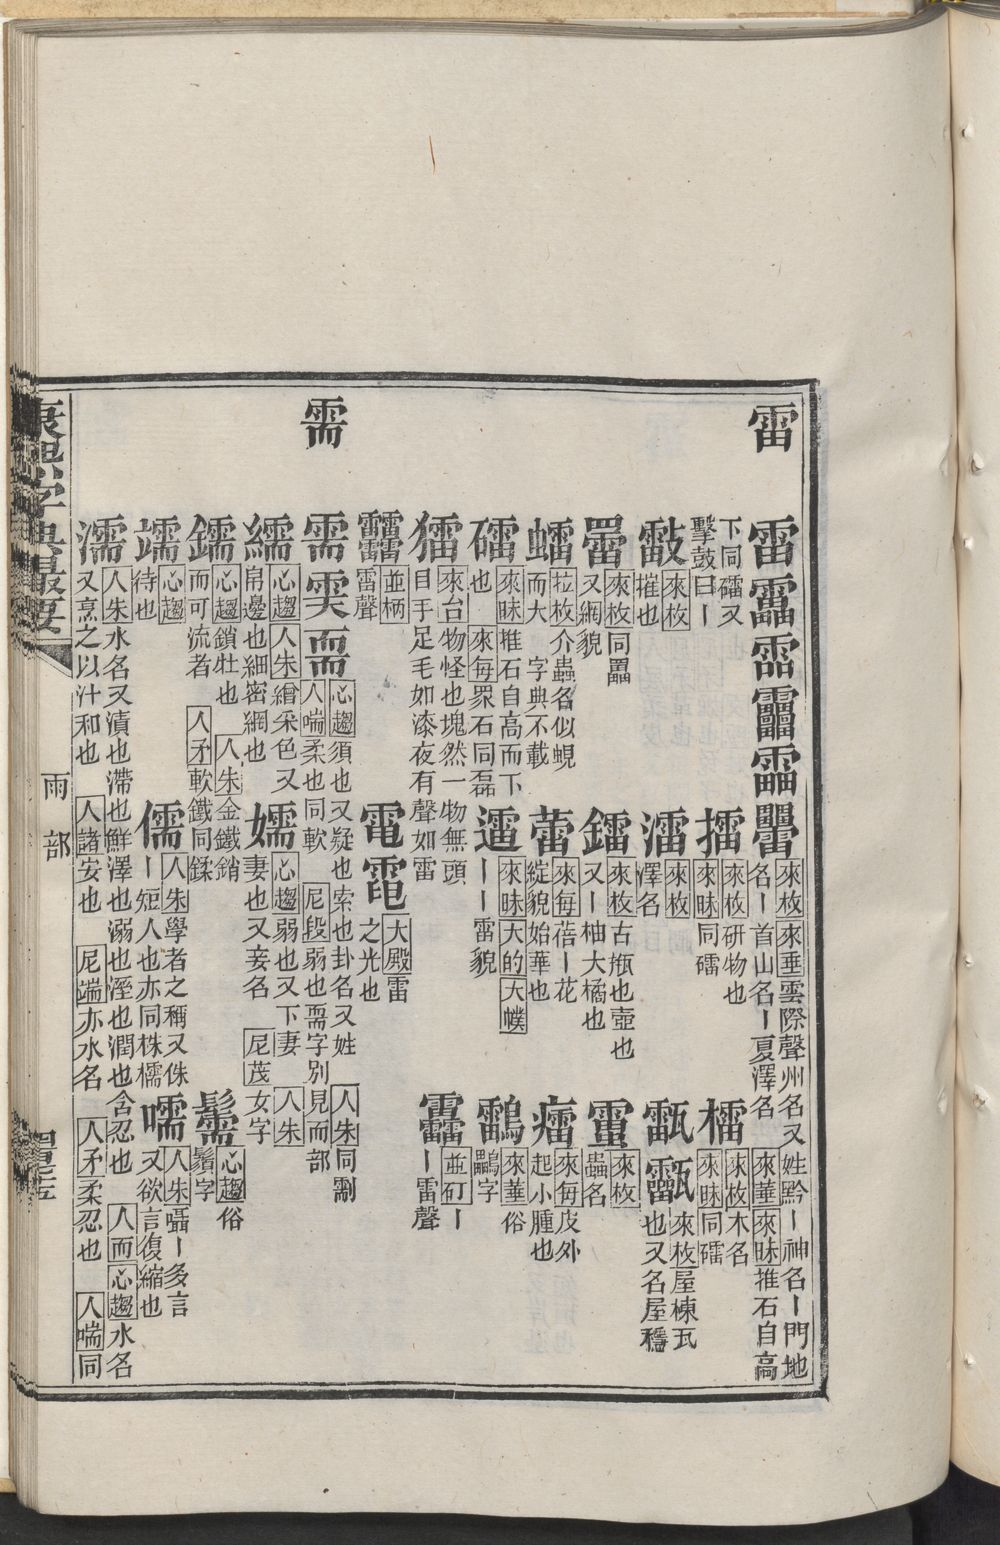 雷
雷靁䨓𩇓𩄣𤴐 來枚 來垂 雲際聲州名又姓黔〡神名〡門地
名〡首山名〡夏澤名 來華 來昧 推石自高
下同礌又
擊鼓曰〡 擂 來枚 研物也
來昧 同礌 檑 來枚 木名
來昧 同礌
㪣 來枚
摧也 澑 來枚
澤名 甂 來枚 屋棟瓦
也又名屋檼
來枚 同罍
又網貌 鐳 來枚 古瓶也壺也
又〡柚大橘也 䨻 來枚
蟲名
䗲 拉枚 介蟲名似蜆
而大 字典不載 蕾 來每 蓓〡花
綻貌始華也 癗 來每 皮外
起小腫也
礌 來昧 推石自高而下
也 來每 眾石同磊 䢮 來昧 大的 大㠓
〡〡雷貌 鸓 來華 俗
鸓字
㹎 來台 物怪也塊然一物無頭
目手足毛如漆夜有聲如雷 靐 並矴 〡
〡雷聲
䨻 並柄
雷聲 電𩂩 大殿 雷
之光也
需
需 心趨 須也又疑也索也卦名又姓 人朱 同㓱
人喘 柔也同軟 尼段 弱也耎字別見而部
繻 心趨 人朱 繒采色又
帛邊也細密網也 嬬 心趨 弱也又下妻 人朱
妻也又妾名 尼茂 女字
鑐 心趨 鎖牡也 人朱 金鐵銷
而可流者 人矛 軟鐵同鍒 鬚 心趨 俗
鬚字
䇕 心趨
待也 儒 人朱 學者之稱又侏
〡短人也亦同株檽 嚅 人朱 囁〡多言
又欲言復縮也
濡 人朱 水名又漬也滯也鮮澤也溺也溼也潤也含忍也 人而 心趨 水名
又烹之以汁和也 人諸 安也 尼端 亦水名 人矛 柔忍也 人喘 同
康熙字典最要
雨部